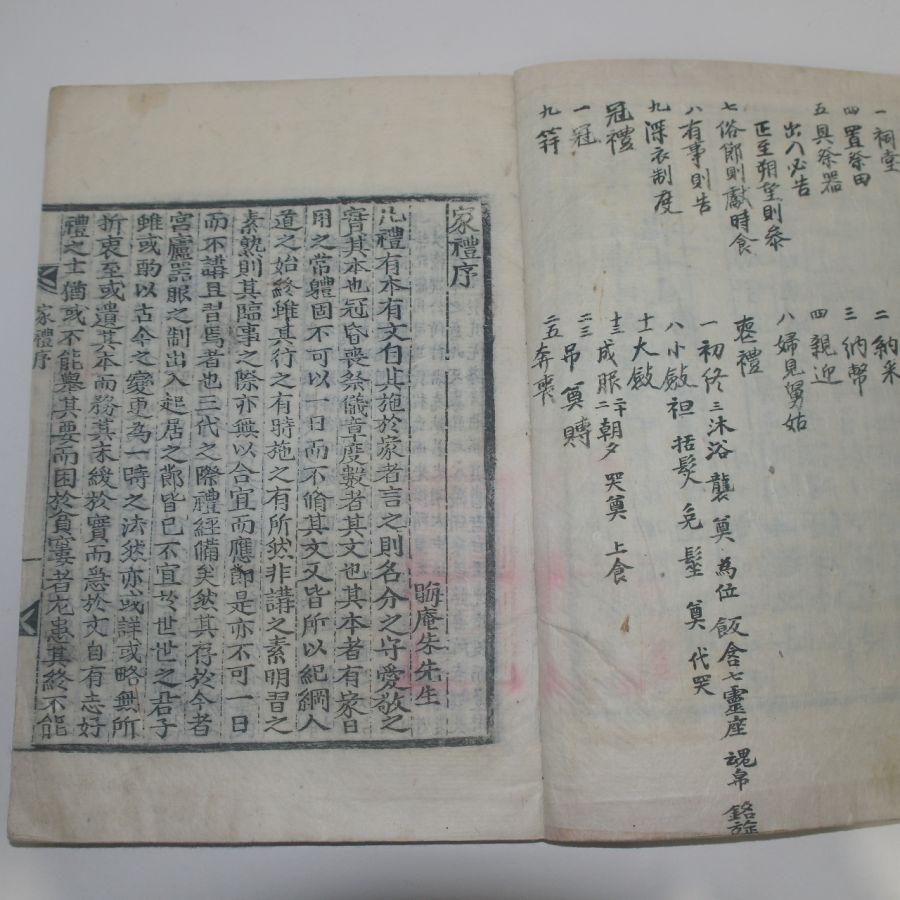 一 祠堂
四 置祭田
五 具祭器
出入必告
正至朔望則參
七 俗節則獻時食
八 有事則告
九 深衣制度
冠禮
一 冠
九 笄
二 納采
三 納幣
四 親迎
八 婦見舅姑
喪禮
一 初終 三 沐浴 襲 奠 為位 飯含 七 靈座 魂帛 銘旌
八 小斂 袒 括髮 免 髽 奠 代哭
十 大斂
十三 成服 二十 朝夕哭奠 上食
二三 吊奠賻
二五 奔喪
家禮序
晦庵朱先生
凡禮有本有文自其施於家者言之則名分之守愛敬之
實其本也冠昏喪祭儀章度數者其文也其本者有家日
用之常軆固不可以一日而不脩其文又皆所以紀綱人
道之始終雖其行之有時施之有所然非講之素明習之
素熟則其臨事之際亦無以合宜而應節是亦不可一日
而不講且習焉者也三代之際禮經備矣然其存於今者
宮廬器服之制出入起居之節皆已不宜於世世之君子
雖或酌以古今之變更為一時之法然亦或詳或略無所
折衷至或遺其本而務其末緩於實而急於文自有志好
禮之士猶或不能舉其要而困於貧窶者尤患其終不能
家禮序